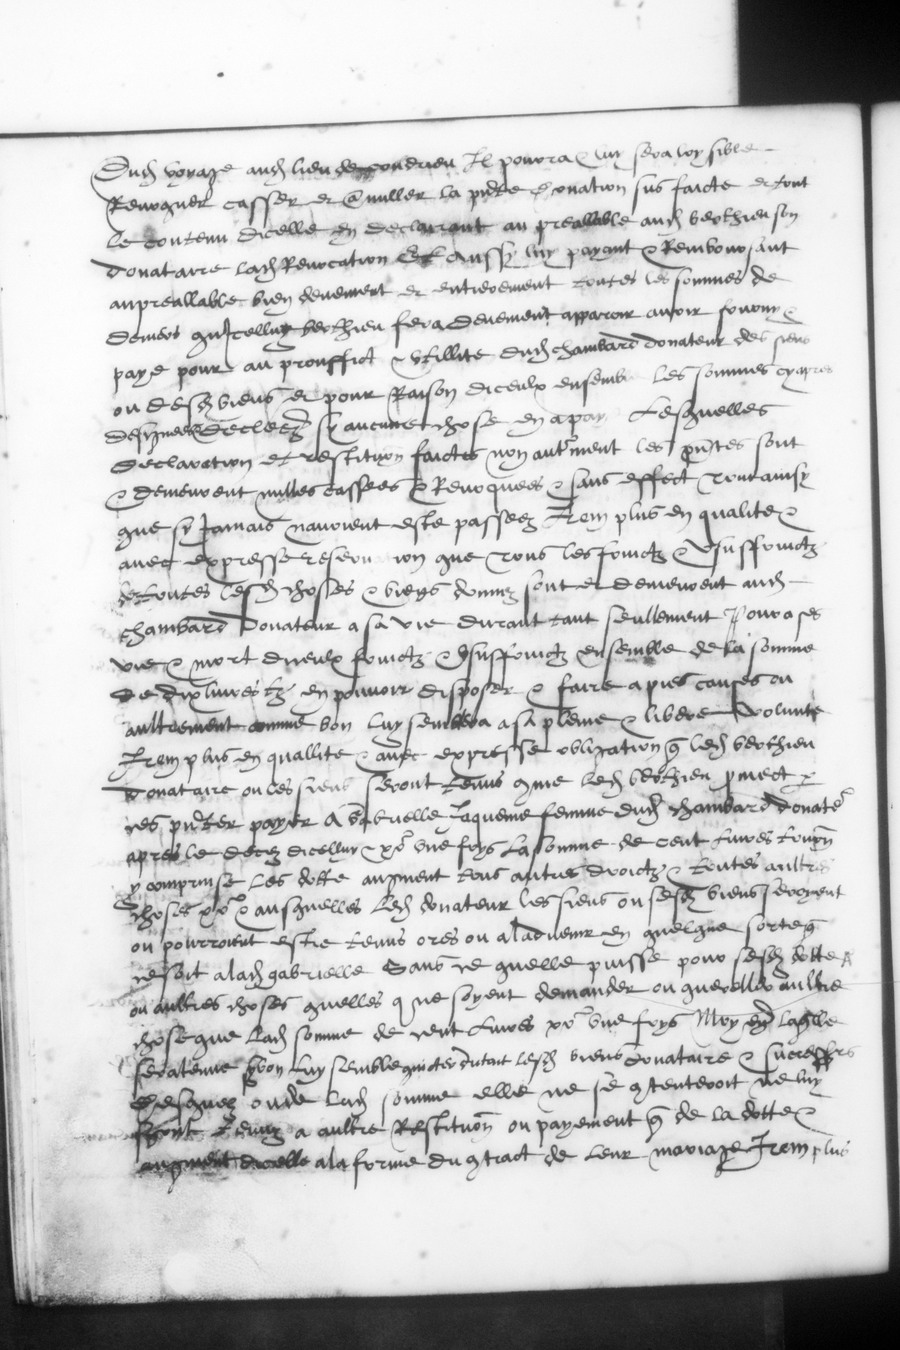 Dudt voyage audt lieu de condrieu Il pourra & luy sera loysible
Revoquer casser et anuller la pnte donation sus faicte et tout
le contenu dicelle en declairant au preallable audt berthieu son
donataire ladt Revocation Et Aussy luy payant & Remboursant
aupreallable bien deuement et entierement toutes les sommes de
deniers qu Icelluy berthieu fera deuement apparoir avoir fourny &
paye pour au prouffict & utillite dudt chambard donateur des siens
ou desdt biens et pour Raison diceulx ensemble les sommes cy apres
declerez sy aucune chose en a paye Lesquelles
declaration et restitution faictes non autrment les pntes sont
& demeurent nulles cassees & Revoquees & sans effect tout ainsy
que sy Jamais navoient este passeez Item plus en qualite &
avec expresse reservation que tous les fruictz & Usuffruictz
de toutes lesdt choses & biens donnez sont et demeurent audt
chambard donateur a sa vie durant tant seullement Pour a ses
vie & mort diceulx fruictz & Usuffruictz ensemble de la somme
de dix livres tz en pouvoir disposer & faire a pies causes ou
aultrement comme bon luy semblera a sa pleine & libere volunte
Item plus en quallite & avec expresse obligation q ledt berthieu
donataire ou les siens seront tenus come ledt berthieu pmect p
ces pntes payer A gabrielle Jaqueme femme dudt chambard donater
apres le deces dicelluy & po une foys La somme de cent livres tourn
y comprinse les dotte augment tous autres droictz & toutes aultres
choses & ausquelles ledt donateur les siens ou sesdt biens seroyent
ou pourroient estre tenus ores ou a ladvenir en quelque sorte q
ce soit a ladt gabrielle Sans ce quelle puisse pour sesdt dotte
ou aultres choses quelles q ne soyent demander ou quereller aultre
chose que ladt somme de cent livres po une foys Moyent laqlle
sera tenue sy bon luy semble quicter lesdt biens donataire & successeurs
ou de ladt somme elle ne se contenteroit ne luy
seront tenuz a aultre Restitution ou payement q de la dotte &
augment dicelle a la forme du contract de leur mariage Item plus